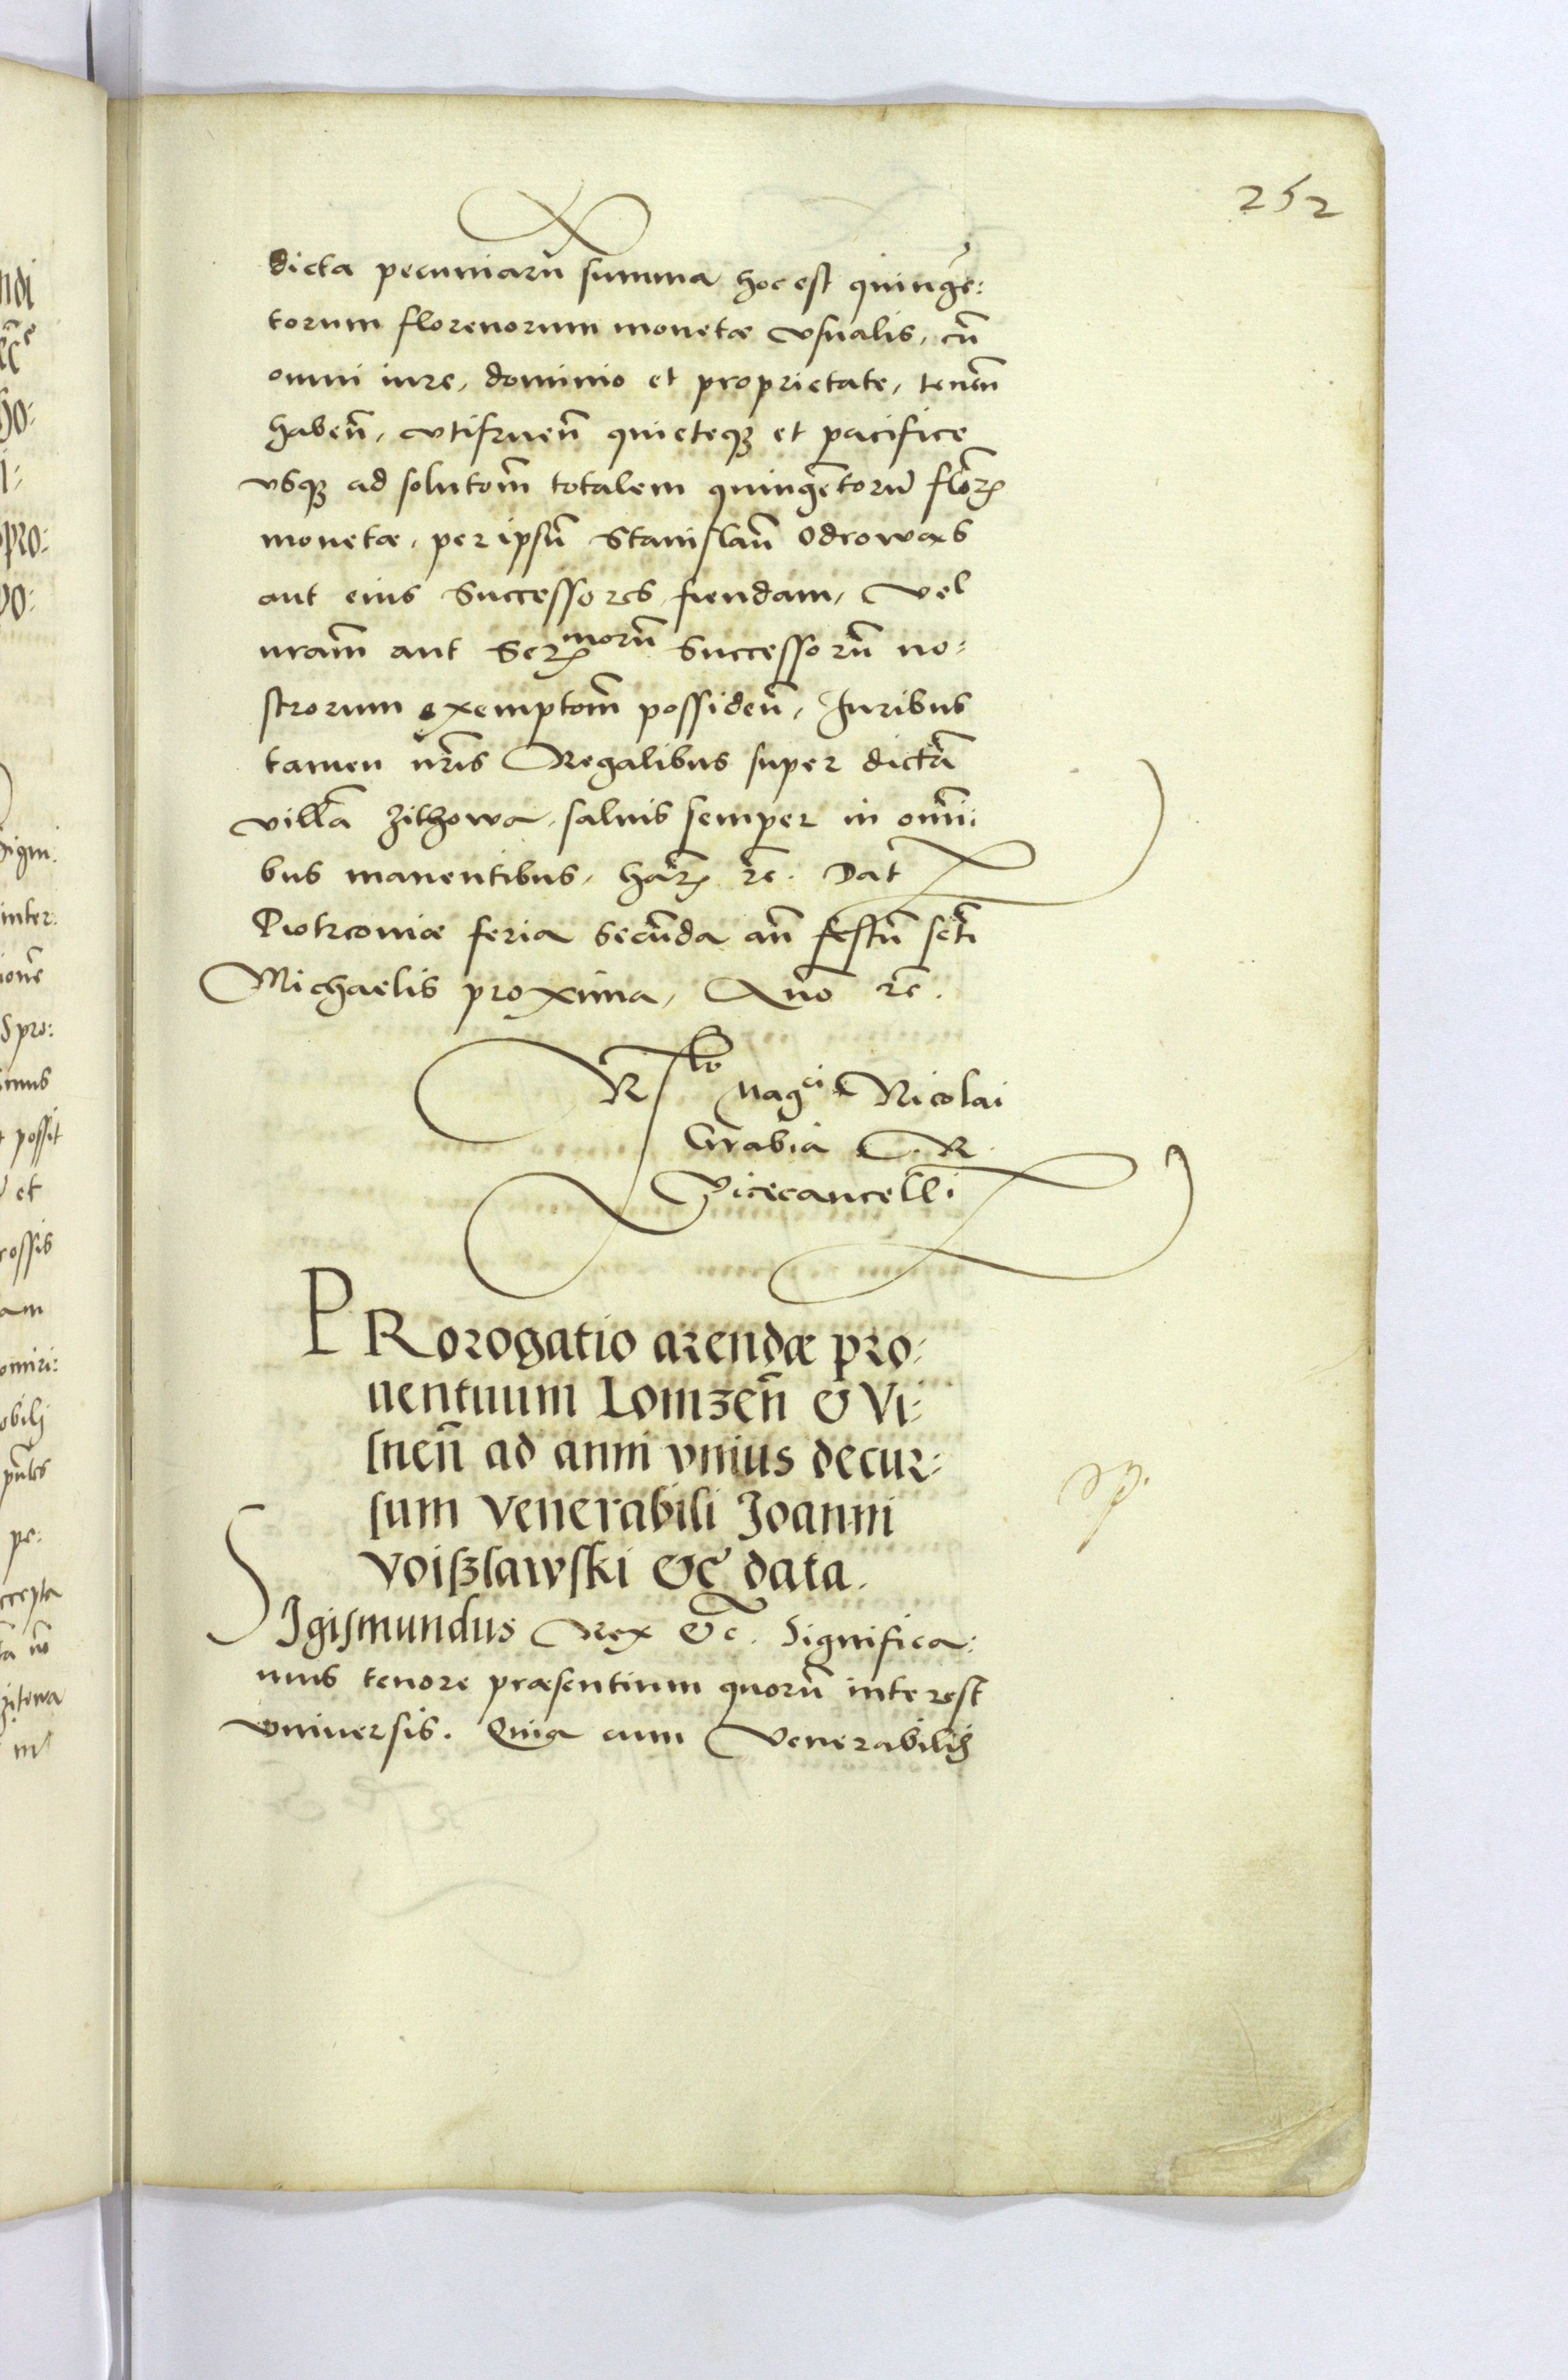 252
dicta pecuniarũ summa hoc est quingẽ:
torum florenorum monetæ vsualis, cũ
omni iure, dominio et proprietate, teneñ
habeñ, vtifrueñ quieteqꝫ et pacifice
vsqꝫ ad solutom̃ totalem quingẽtorũ flor̃ꝝ
monetæ, per ipsũ Stanislaũ Odrowas
aut eius Successores fiendam, vel
nram̃ aut Serᵐᵒʳũ Successorũ no:
strorum exemptom̃ possideñ, Juribus
tamen nr̃is Regalibus super dictã
villã Zithowa, saluis semper in omni:
bus manentibus, har̃ꝝ ꝛc̃. Dat̃
Piotrcouiæ feria Secũda añ festũ sct̃i
Michaelis proxima, Año ꝛc̃.
Rˡᵒ Magᶜⁱ Nicolai
Grabia R. R.
Vicecancelli
PRorogatio arendæ pro:
uentuum Lomzeñ & Vi:
sneñ ad anni vnius decur:
sum venerabili Joanni
voißlawski &c̃ data.
SIgismundus Rex &c. Significa:
mus tenore præsentium quorũ interest
vniuersis. Quia cum Venerabilis